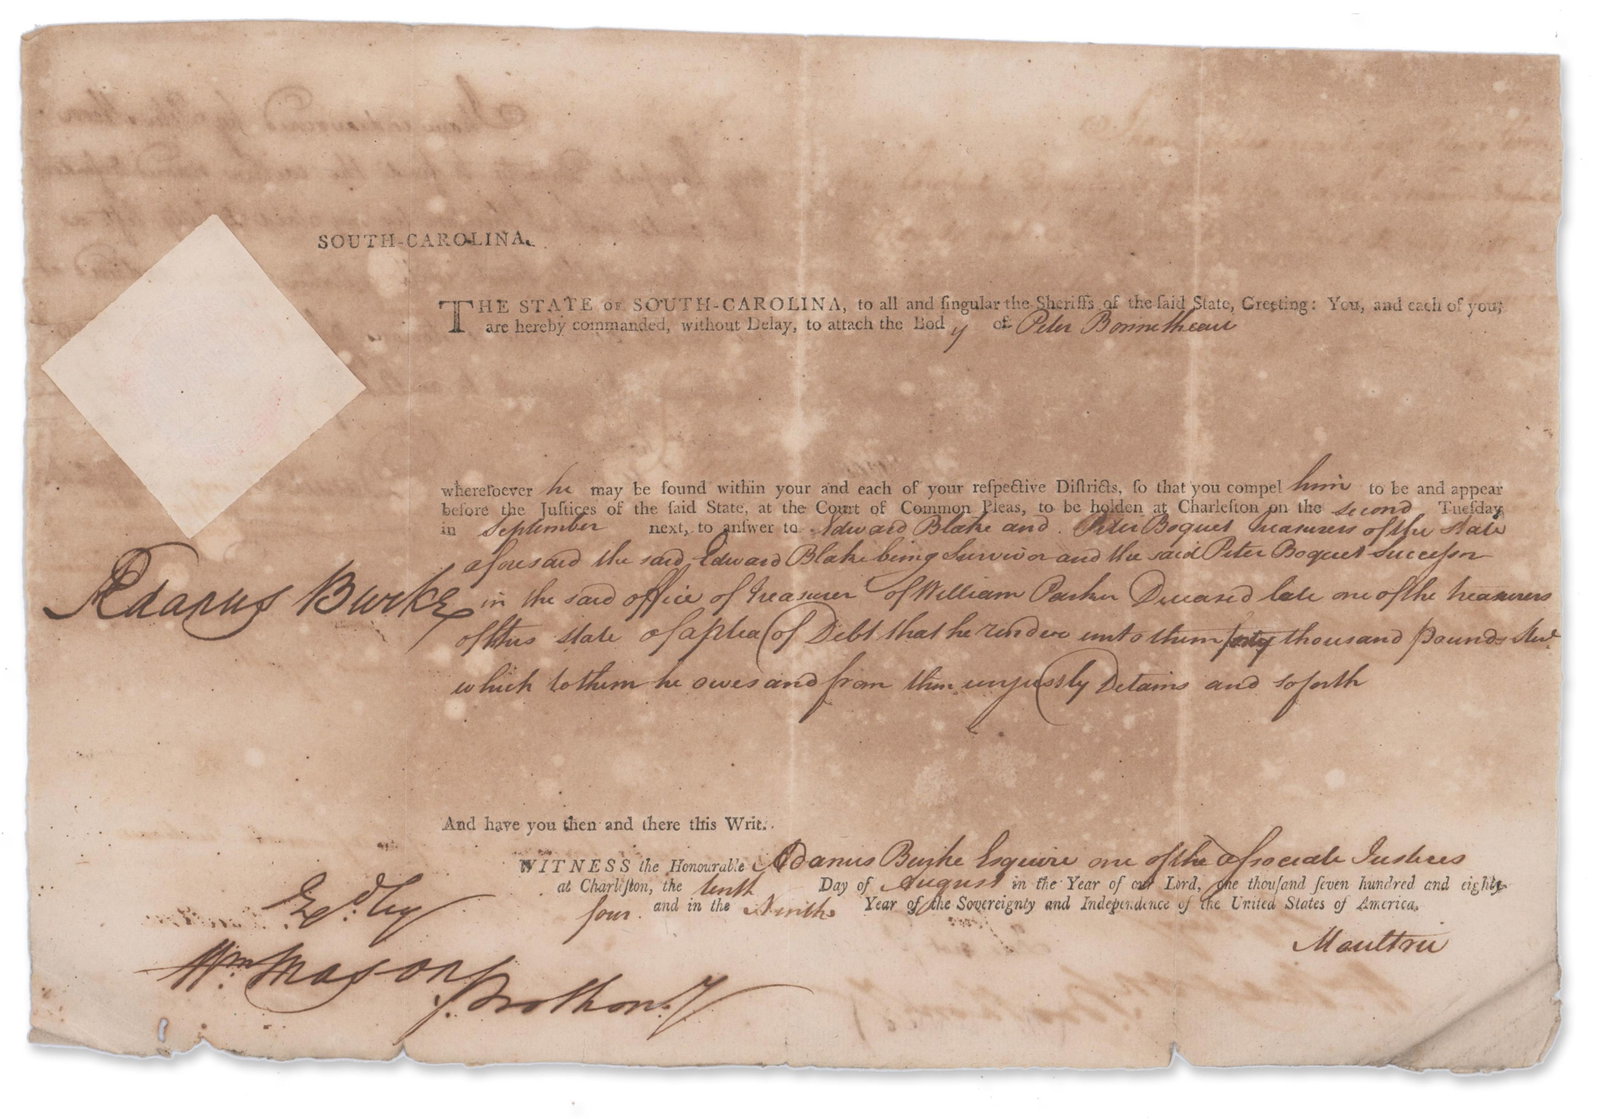 SOUTH-CAROLINA.
THE STATE OF SOUTH-CAROLINA, to all and singular the Sheriffs of the said State, Greeting: You, and each of you,
are hereby commanded, without Delay, to attach the Body of Peter Bonnetheau
wheresoever he may be found within your and each of your respective Districts, so that you compel him to be and appear
before the Justices of the said State, at the Court of Common Pleas, to be holden at Charleston on the second Tuesday
in September next, to answer to Edward Blake and Peter Boquet Treasurers of the State
aforesaid the said Edward Blake being Survivor and the said Peter Boquet successor
Ædanus Burke
in the said office of Treasurer of William Parker Deceased late one of the treasurers
of this state of a plea of Debt that he render unto them forty thousand pounds
which to them he owes and from them unjustly Detains and so forth
And have you then and there this Writ.
WITNESS the Honourable Ædanus Burke Esquire one of the associate Justices
at Charleston, the tenth Day of August in the Year of our Lord, one thousand seven hundred and eighty
four and in the Ninth Year of the Sovereignty and Independence of the United States of America.
Moultrie
Wm Mason
Prothon:y